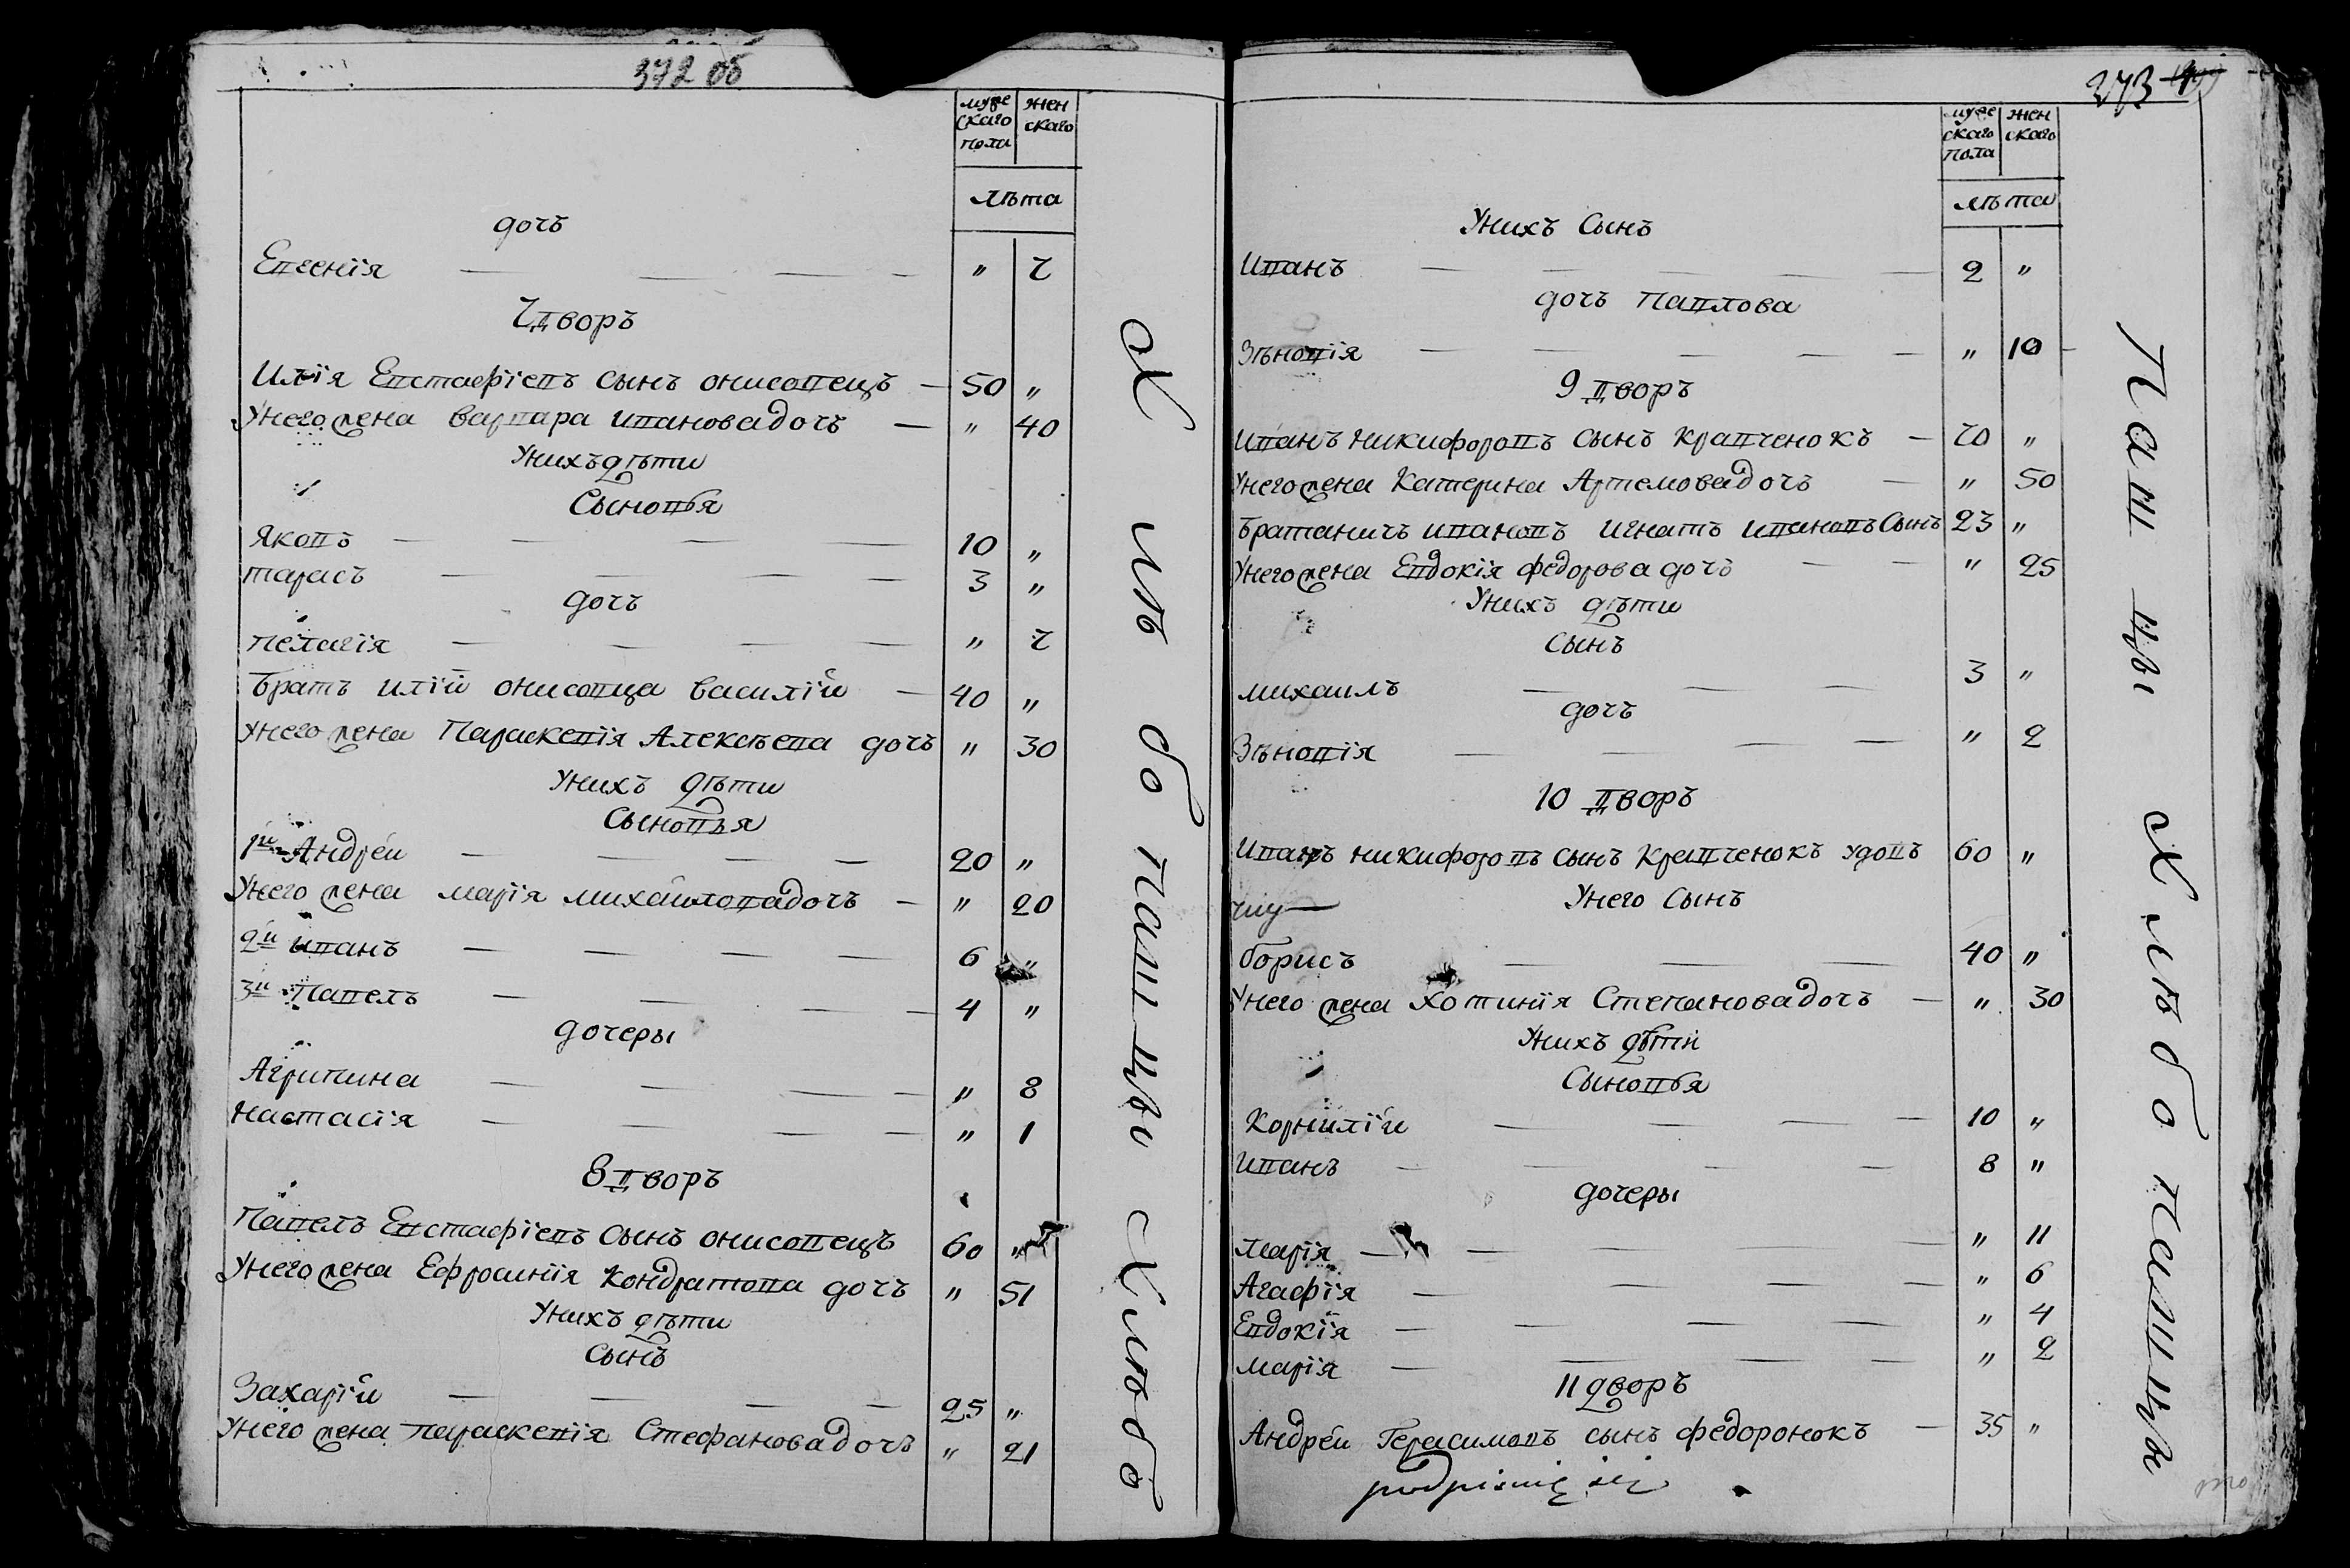 372 об
муже скаго пола
жен скаго
лѣта
дочъ
Евгенія — — — — " 7
7 дворъ
Илія Евстафіевъ сынъ онисовецъ — 50 "
Унего жена варвара ивановадочъ — " 40
Унихъ дѣти
Сыновья
Яковъ — — — — 10 "
тарасъ — — — — 3 "
дочъ
пелагія — — — — " 7
братъ иліи онисовца василій — 40 "
Унего жена Параскевія Алексѣева дочъ " 30
Унихъ дѣти
Сыновья
1й Андрей — — — — 20 "
Унего жена марія михаиловадочъ — " 20
2й иванъ — — — — 6 "
3й Павелъ — — — — 4 "
дочеры
Агрипина — — — — " 8
настасія — — — — " 1
8 дворъ
Павелъ Евстафіевъ сынъ онисовецъ 60 "
Унего жена Ефросинія кондратова дочъ " 51
Унихъ дѣти
сынъ
Захарій — — — — 25 "
Унего жена параскевія Стефановадочъ " 21
Хлѣбопашцы Хлѣбо
373
муже скаго пола
жен скаго
лѣта
Унихъ Сынъ
Иванъ — — — — — 2 "
дочъ павлова
Зѣновія — — — — — " 10
9 дворъ
иванъ никифоровъ сынъ кравченокъ — 70 "
Унего жена Катерина Артемовадочъ — " 50
братаничъ ивановъ игнатъ ивановъ Сынъ 23 "
Унего жена Евдокія федорова дочъ — — " 25
Унихъ дѣти
сынъ
михаилъ — — — 3 "
дочъ
Зѣновія — — — — " 2
10 дворъ
Иванъ никифоровъ сынъ Кравченокъ удовъ 60 "
Унего Сынъ
борисъ — — — 40 "
Унего жена хотинія Степановадочъ — " 30
Унихъ дѣти
Сыновья
Корнилій — — — — 10 "
иванъ — — — — 8 "
дочеры
марія — — — — " 11
Агафія — — — — " 6
Евдокія — — — — " 4
марія — — — — " 2
11 дворъ
Андрей Герасимовъ сынъ федоронокъ — 35 "
podpisuię się
Пашцы Хлѣбопашцы